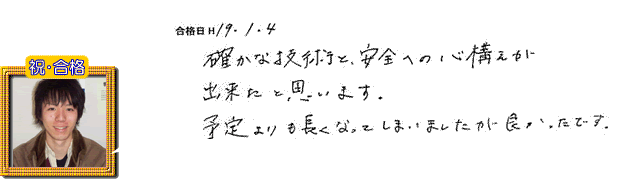 合格日 H19.1.4
祝・合格
確かな技術と、安全への心構えが
出来たと思います。
予定よりも長くなってしまいましたが良かったです。